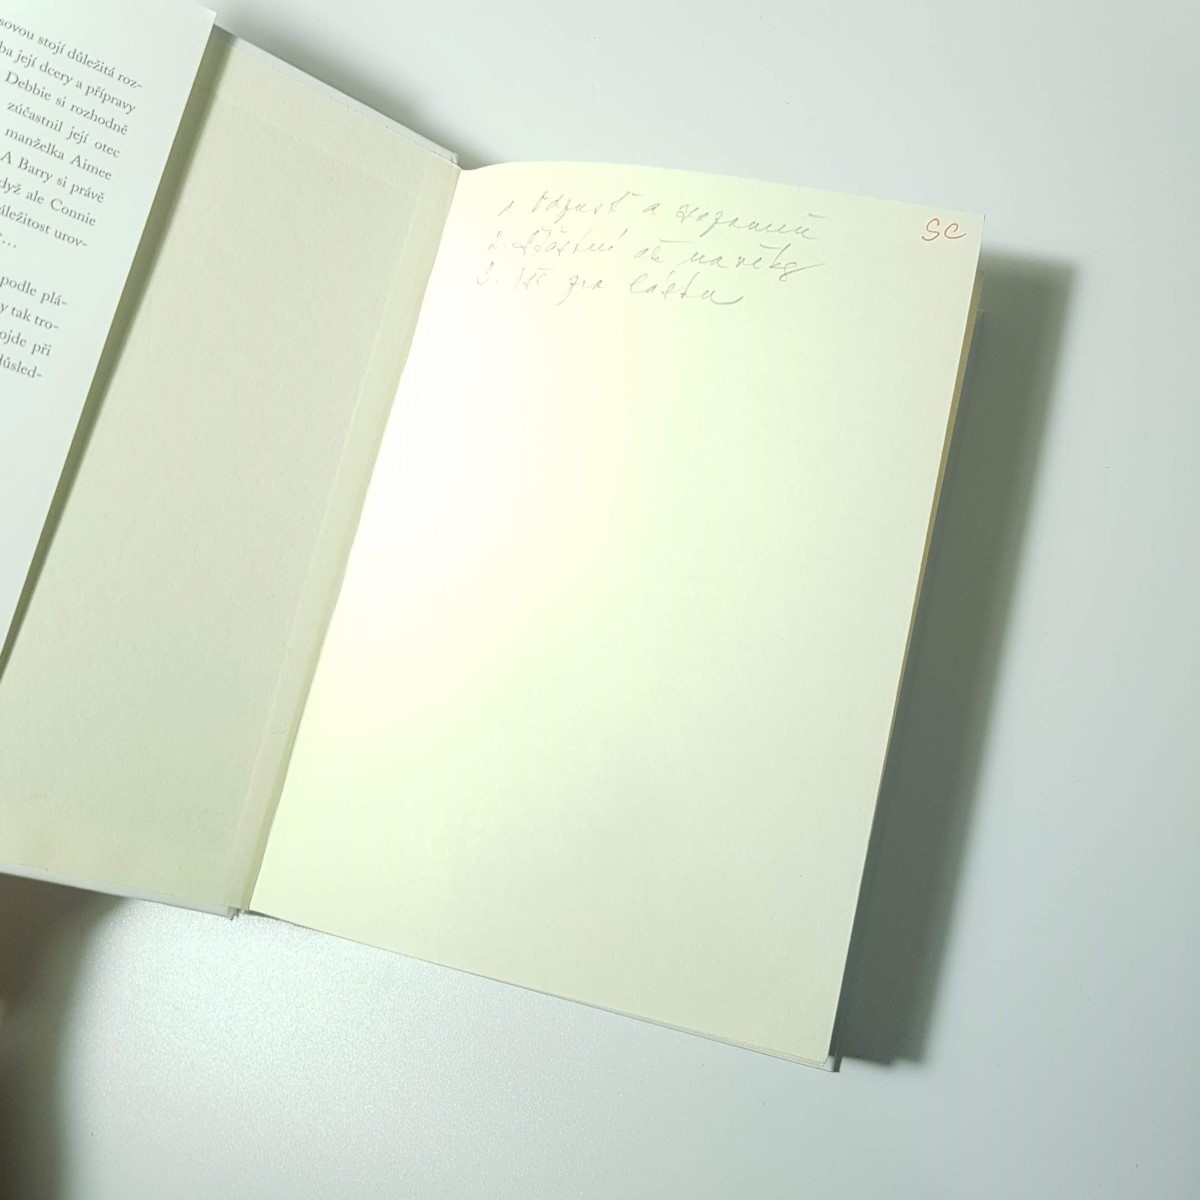 sovou stojí důležitá roz-
ba její dcery a přípravy
Debbie si rozhodně
zúčastnil její otec
manželka Aimee
A Barry si právě
dyž ale Connie
áležitost urov-
...
podle plá-
y tak tro-
ojde při
důsled-
1. Odpusť a zapomeň
2. Šťastní až navěky
3. Vše pro lásku
SC